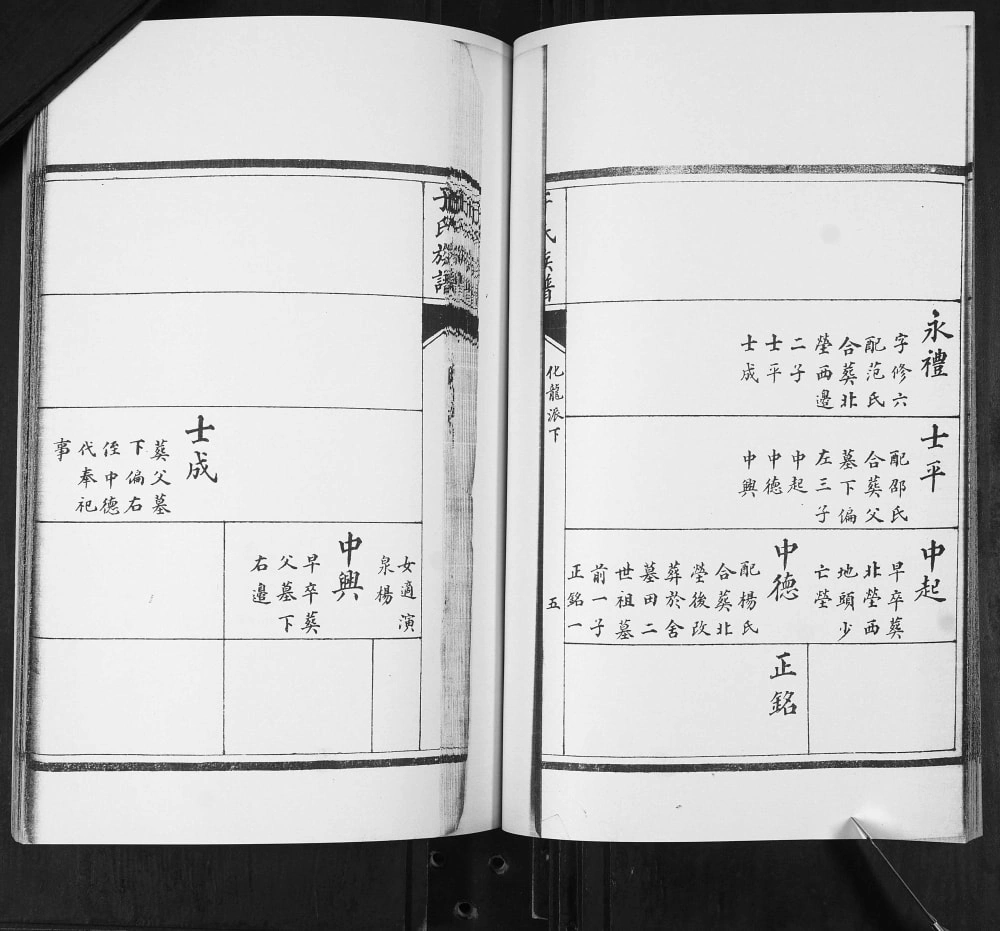 永禮
字修六
配范氏
合葬北
塋西邊
二子
士平
士成
士平
配邵氏
合葬父
墓下偏
左三子
中起
中德
中興
中起
早卒葬
北塋西
地頭少
亡塋
中德
配楊氏
合葬北
塋後改
葬於舍
墓田二
世祖墓
前一子
正銘一
正銘
氏族譜
化龍派下
五
子氏族譜
女適演
泉楊
中興
早卒葬
父墓下
右邊
士成
葬父墓
下偏右
侄中德
代奉祀
事